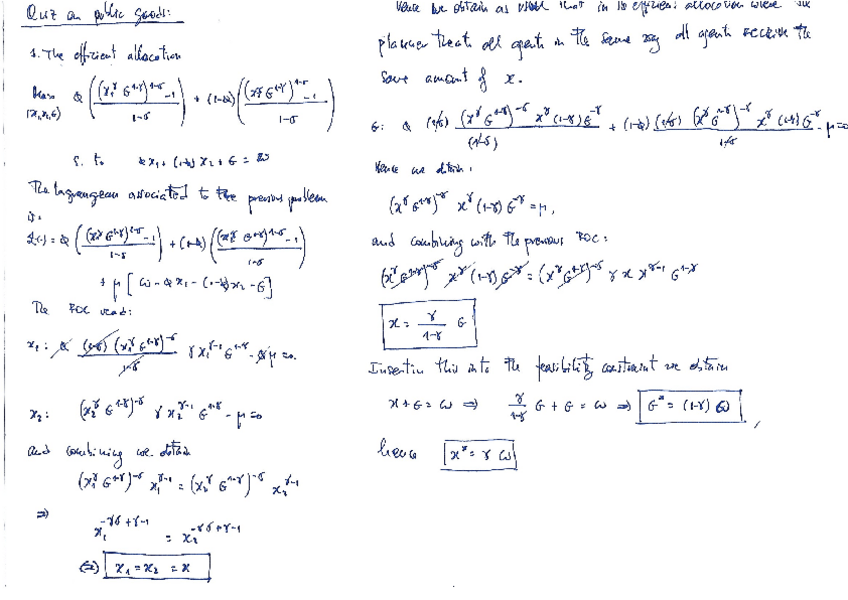 Quiz on public goods:
1. The efficient allocation
Max α ( ((x₁^γ G^{1-γ})^{1-σ} - 1) / (1-σ) ) + (1-α) ( ((x₂^γ G^{1-γ})^{1-σ} - 1) / (1-σ) )
{x₁, x₂, G}
s. to αx₁ + (1-α)x₂ + G = ω
The Lagrangean associated to the previous problem
is:
L(·) = α ( ((x₁^γ G^{1-γ})^{1-σ} - 1) / (1-σ) ) + (1-α) ( ((x₂^γ G^{1-γ})^{1-σ} - 1) / (1-σ) )
+ μ [ω - αx₁ - (1-α)x₂ - G]
The FOC read:
x₁: α (1-σ) (x₁^γ G^{1-γ})^{-σ} / (1-σ) γ x₁^{γ-1} G^{1-γ} - αμ = 0.
x₂: (x₂^γ G^{1-γ})^{-σ} γ x₂^{γ-1} G^{1-γ} - μ = 0
and combining we obtain
(x₁^γ G^{1-γ})^{-σ} x₁^{γ-1} = (x₂^γ G^{1-γ})^{-σ} x₂^{γ-1}
⇒
x₁^{-γσ+γ-1} = x₂^{-γσ+γ-1}
(⇒) x₁ = x₂ = x
Hence we obtain as usual that in efficient allocation where the
planner treats all agents in the same way all agents receive the
same amount of x.
G: α (1-σ) (x^γ G^{1-γ})^{-σ} x^γ (1-γ) G^{-γ} / (1-σ) + (1-α) (1-σ) (x^γ G^{1-γ})^{-σ} x^γ (1-γ) G^{-γ} / (1-σ) - μ = 0
Hence we obtain:
(x^γ G^{1-γ})^{-σ} x^γ (1-γ) G^{-γ} = μ,
and combining with the previous FOC:
(x^γ G^{1-γ})^{-σ} x^γ (1-γ) G^{-γ} = (x^γ G^{1-γ})^{-σ} γ x x^{γ-1} G^{1-γ}
x = γ / (1-γ) G
Insertin this into the feasibility constraint we obtain
x + G = ω ⇒ γ / (1-γ) G + G = ω ⇒ G* = (1-γ) ω,
hence x* = γ ω